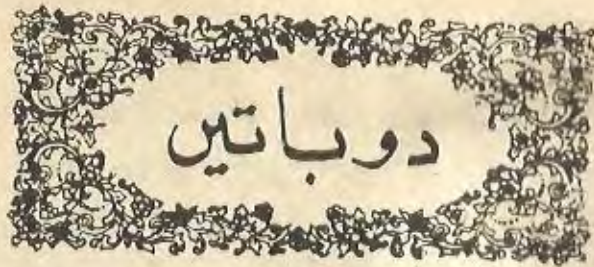 دو باتیں